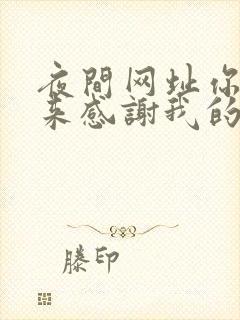 夜間网址你
来感謝我的
滕印